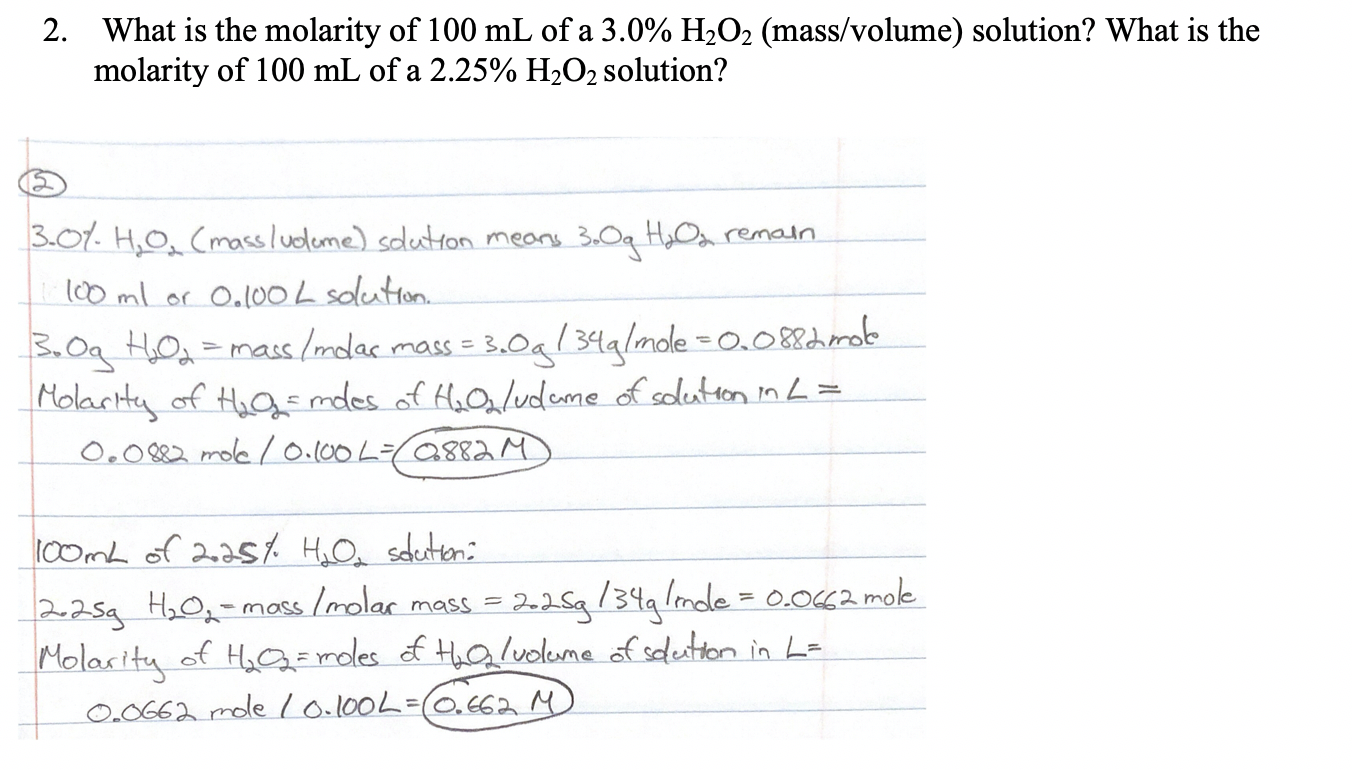 2. What is the molarity of 100 mL of a 3.0% H₂O₂ (mass/volume) solution? What is the
molarity of 100 mL of a 2.25% H₂O₂ solution?
②
3.0% H₂O₂ (mass/volume) solution means 3.0g H₂O₂ remain
100 ml or 0.100 L solution.
3.0g H₂O₂ = mass/molar mass = 3.0g / 34g/mole = 0.0882 mole
Molarity of H₂O₂ = moles of H₂O₂/volume of solution in L =
0.0882 mole / 0.100 L = 0.882 M
100mL of 2.25% H₂O₂ solution:
2.25g H₂O₂ = mass/molar mass = 2.25g / 34g/mole = 0.0662 mole
Molarity of H₂O₂ = moles of H₂O₂/volume of solution in L =
0.0662 mole / 0.100L = 0.662 M